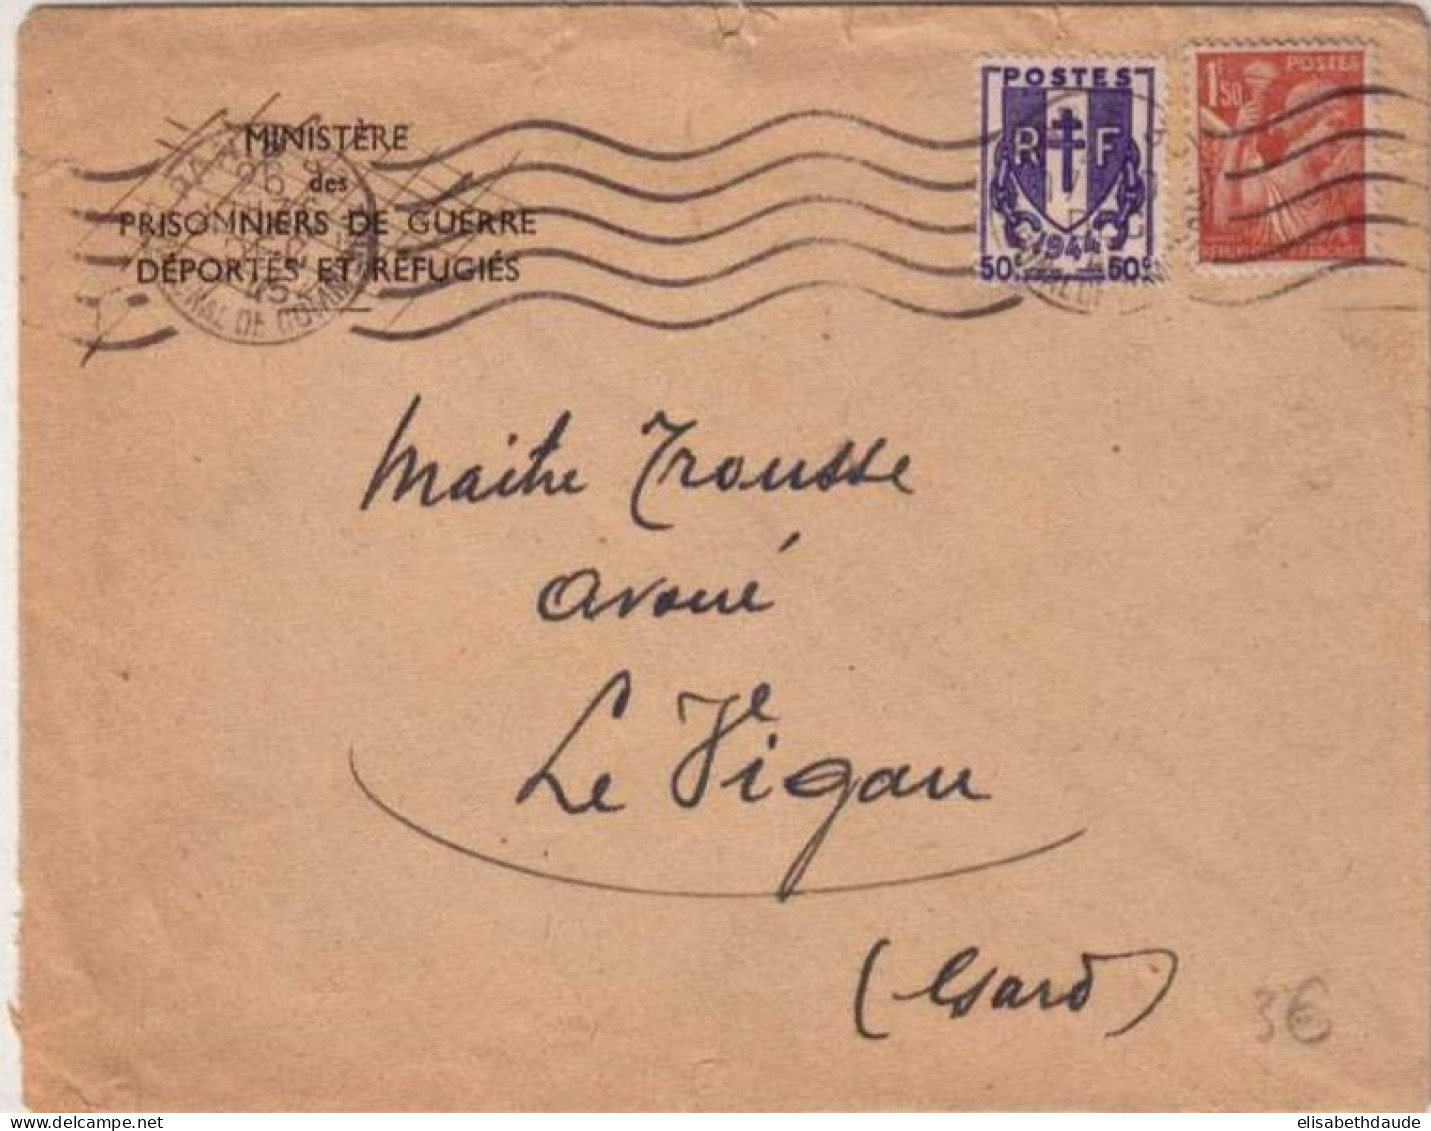 MINISTÈRE
des
PRISONNIERS DE GUERRE
DÉPORTÉS ET RÉFUGIÉS
26
45
POSTES
R F
1944
50c 50c
1F50
POSTES
Maitre Trousse
avoué
Le Vigan
(Gard)
3€
elisabethdaude